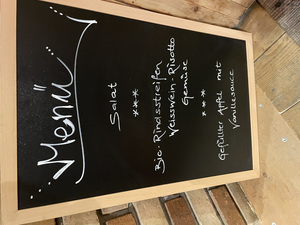 Menü
Salat
***
Bio-Rindsstreifen
Weisswein-Risotto
Gemüse
***
Gefüllter Apfel mit
Vanillesauce